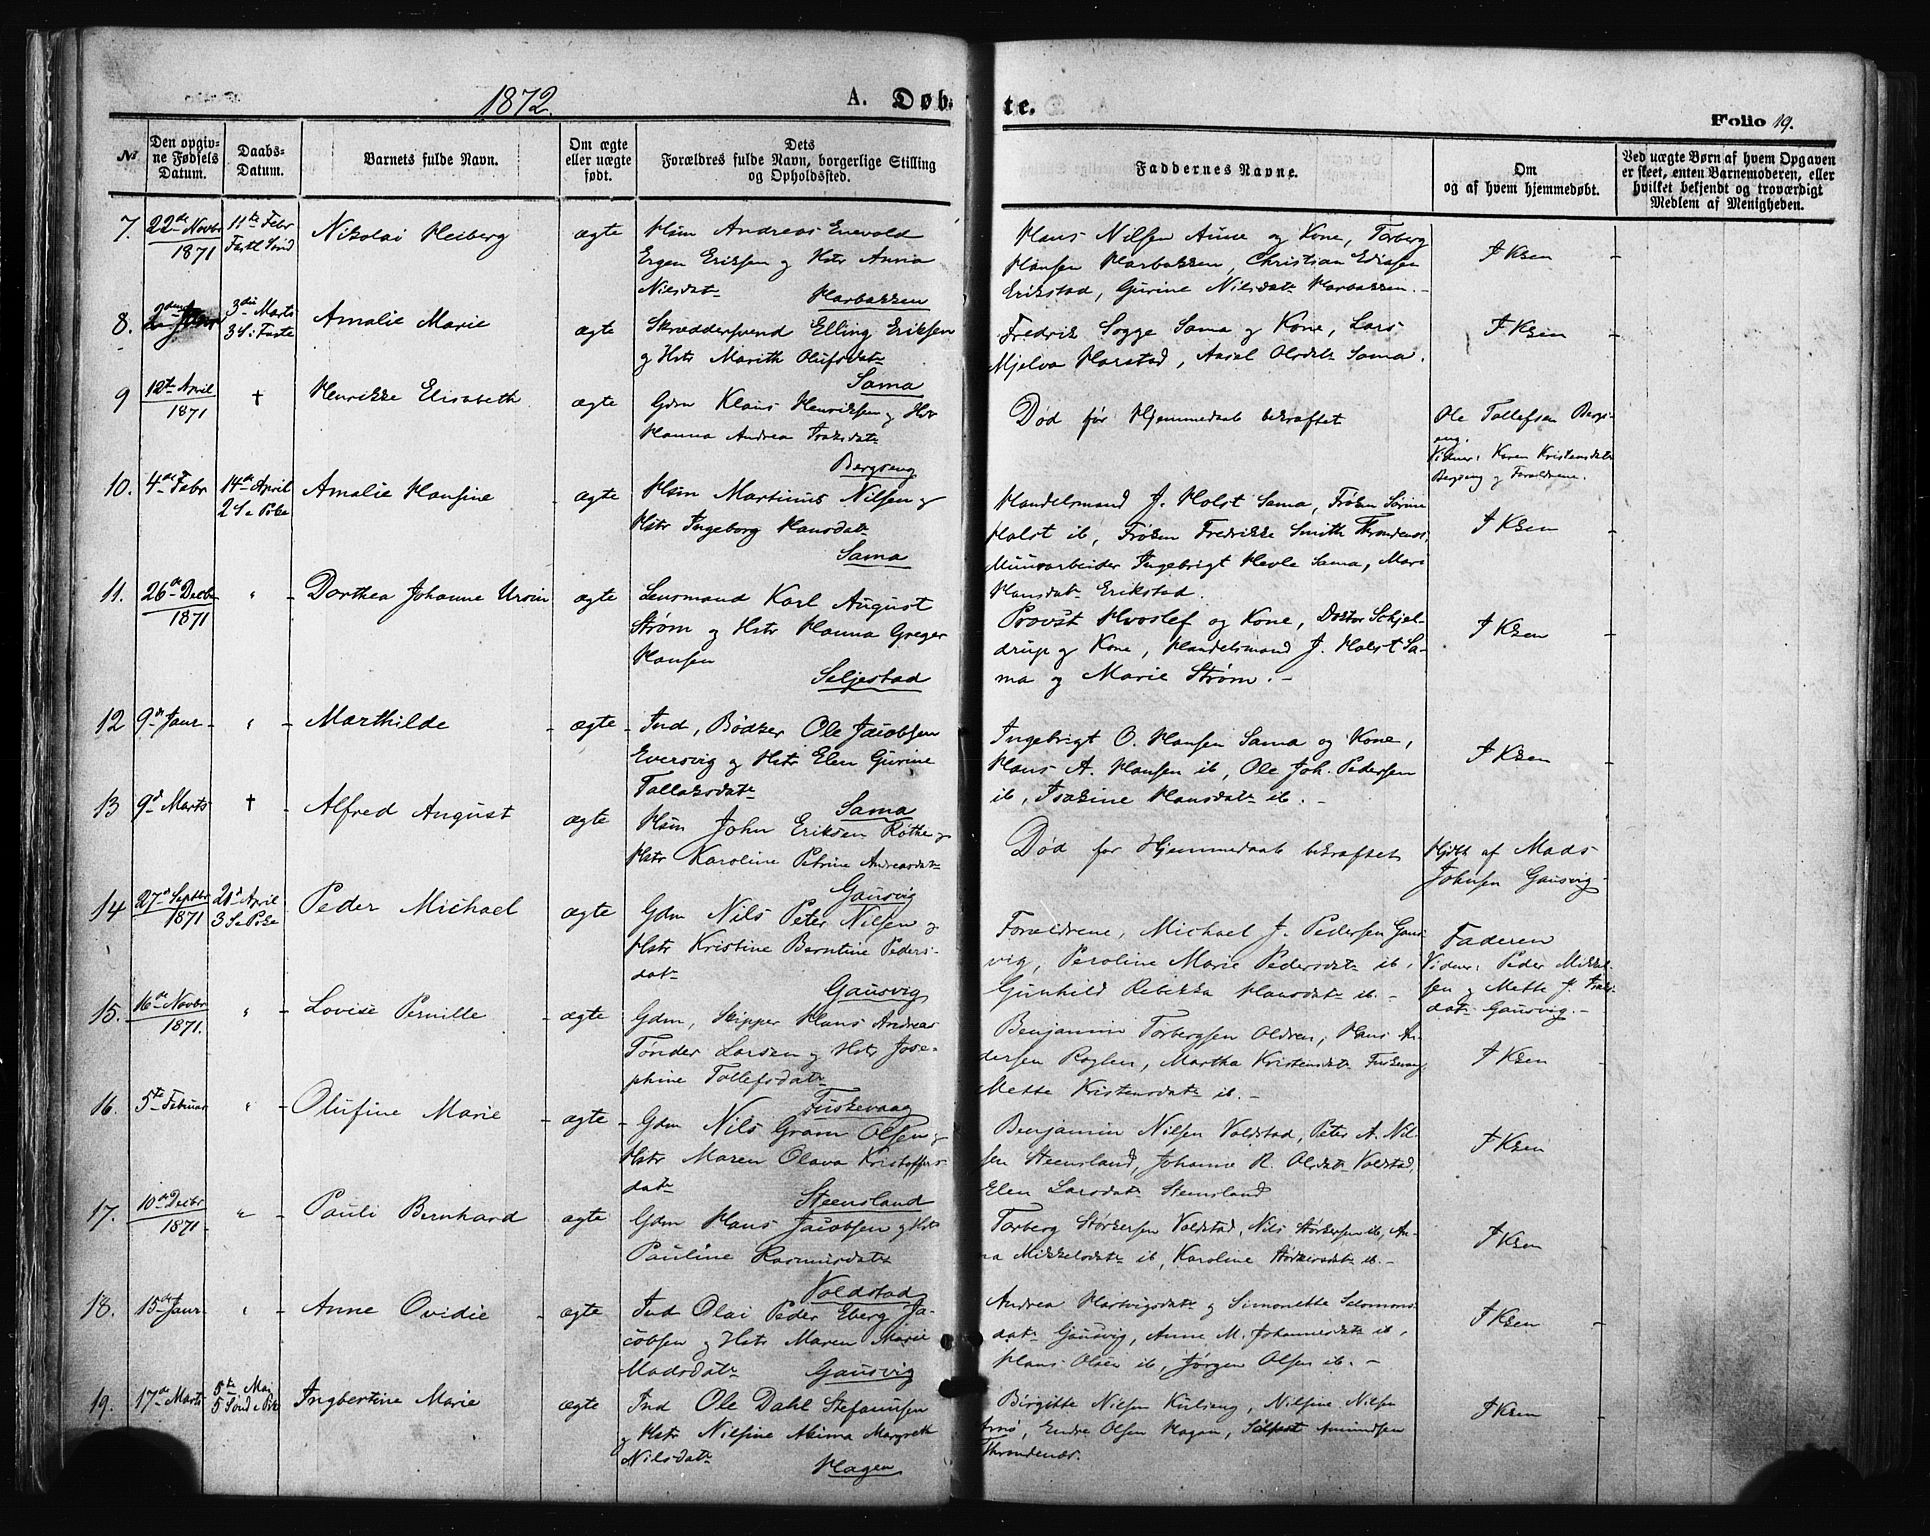 1872.
A. Døb-
te.
Folio 19.
№
Den opgiv-
ne Fødsels
Datum.
Daabs-
Datum.
Barnets fulde Navn.
Om ægte
eller uægte
født.
Dets
Forældres fulde Navn, borgerlige Stilling
og Opholdssted.
Faddernes Navne.
Om
og af hvem hjemmedøbt.
Ved uægte Børn af hvem Opgaven
er skeet, enten Barnemoderen, eller
hvilket bekjendt og troværdigt
Medlem af Menigheden.
7.
22de Novbr
1871
11te Febr
Fastl Sønd
Nikolai Heiberg
ægte
Hsm Andreas Enevold
Ergen Eriksen og Hstr Anna
Nilsdatr Harbakken
Hans Nilsen Aune og Kone, Torberg
Hansen Harbakken, Christian Eriksen
Erikstad, Gurine Nilsdatr Harbakken. -
I Ksen
8.
3die Marts
3 S: i Faste
Amalie Marie
ægte
Skræddersvend Elling Eriksen
og Hstr Marith Olufsdatr
Sama
Fredrik Sogge Sama og Kone, Lars
Mjelva Harstad, Aasel Olsdatr Sama.
I Ksen
9
12te April
1871
†
Henrikke Elisabeth
ægte
Gdm Klaus Henriksen og Hstr
Hanna Andrea Isaksdatr
Bergseng
Død før Hjemmedaab bekræftet
Ole Tollefsen Bergs-
eng.
Vidner: Karen Kristensdatr
Bergseng og Forældrene.
10.
4de Febr
14de April
2 S e Paske
Amalie Hansine
ægte
Hsm Martinus Nilsen og
Hstr Ingeborg Hansdatr
Sama
Handelsmand J. Holst Sama, Frøken Sørine
Holst ib, Frøken Fredrikke Smith Throndenes,
Muurarbeider Ingebrigt Hevle Sama, Mari
Hansdatr Erikstad.
I Ksen
11.
26de Decbr
1871
"
Dorthea Johanne Ursin
ægte
Lensmand Karl August
Strøm og Hstr Hanna Greger
Hansen
Seljestad
Provst Hvoslef og Kone, Doktor Schjel-
drup og Kone, Handelsmand J. Holst Sa-
ma og Marie Strøm. -
I Ksen
12
9de Janr
"
Marthilde
ægte
Ind, Bødker Ole Jacobsen
Eversvig og Hstr Elen Gurine
Tollaksdatr
Sama
Ingebrigt O. Hansen Sama og Kone,
Hans A. Hansen ib, Ole Joh. Pedersen
ib, Isakine Hansdatr ib. -
I Ksen
13
9d Marts
†
Alfred August
ægte
Hsm John Eriksen Røthe og
Hstr Karoline Petrine Andreasdatr
Gausvig
Død før Hjemmedaab bekræftet
Hjdbt af Mads
Johnsen Gausvig
14
27de Septbr
1871
21d April
3 S e Paske
Peder Michael
ægte
Gdm Nils Peter Nilsen og
Hstr Kristine Berntine Peders-
datr
Gausvig
Forældrene, Michael J. Pedersen Gaus-
vig, Peroline Marie Pedersdatr ib,
Gunhild Rebekka Hansdatr ib. -
Faderen
Vidner: Peder Mikkel-
sen og Mette J. Isaks-
datr Gausvig. -
15.
16de Novbr
1871.
"
Lovise Pernille
ægte
Gdm, Skipper Hans Andreas
Tønder Larsen og Hstr Jose-
phine Tollefsdatr
Fuskevaag
Benjamin Torbergsen Oldren, Hans An-
dersen Roglen, Martha Kristensdatr Fuskevaag,
Mette Kristensdatr ib. -
I Ksen
16.
5te Februar
"
Olufine Marie
ægte
Gdm Nils Gram Olsen og
Hstr Maren Olava Kristoffers-
datr
Steensland
Benjamin Nilsen Voldstad, Peter A. Nil-
sen Steensland, Johanne R. Olsdatr Voldstad,
Elen Larsdatr Steensland
I Ksen
17.
10de Decbr
1871
"
Pauli Bernhard
ægte
Gdm Hans Jacobsen og Hstr
Pauline Rasmusdatr
Voldstad
Torberg Størkersen Voldstad, Nils Størkersen ib, An-
na Mikkelsdatr ib, Karoline Størkersdatr ib. -
I Ksen
18.
15de Janr
"
Anne Ovidie
ægte
Ind Olai Peder Eberg Ja-
cobsen og Hstr Maren Marie
Madsdatr Gausvig
Andrea Hartvigsdatr og Simonette Salomons-
datr Gausvig, Anne M. Johannesdatr ib,
Hans Olsen ib, Jørgen Olsen ib. -
I Ksen
19.
17de Marts
5te Mai
5 Sønd e Pske
Ingbertine Marie
ægte
Ind Ole Dahl Stefanusen
og Hstr Nilsine Akima Margreth
Nilsdatr
Hagen
Birgitte Nilsen , Nilsine Nilsen
Arnø, Endre Olsen Hagan, Amundsen
Throndenæs.
I Ksen